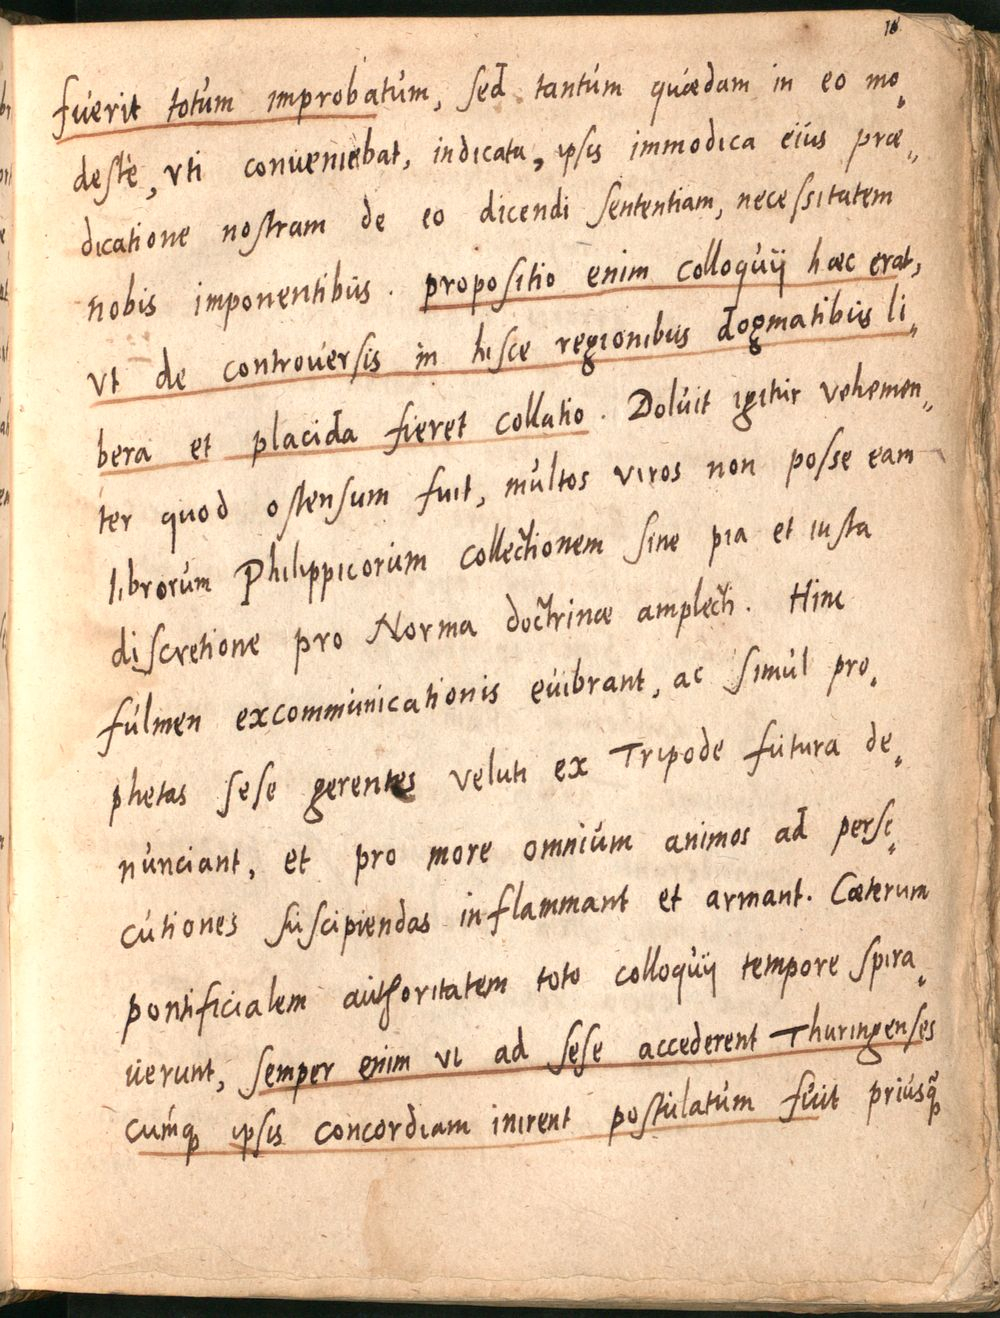 10
fuerit totum improbatum, sed tantum quædam in eo mo„
destè, vti conueniebat, indicata, ipsis immodica eius præ„
dicatione nostram de eo dicendi sententiam, necessitatem
nobis imponentibus. propositio enim colloquij hæc erat,
vt de controuersis in hisce regionibus dogmatibus li„
bera et placida fieret collatio. Doluit igitur vehemen„
ter quod ostensum fuit, multos viros non posse eam
librorum Philippicorum collectionem sine pia et iusta
discretione pro Norma doctrinæ amplecti. Hinc
fulmen excommunicationis euibrant, ac simul pro„
phetas sese gerentes veluti ex Tripode futura de„
nunciant, et pro more omnium animos ad perse„
cutiones suscipiendas inflammant et armant. Cæterum
pontificialem authoritatem toto colloquij tempore spira„
uerunt, semper enim vt ad sese accederent Thuringenses
cumq; ipsis concordiam inirent postulatum fuit priusq̃